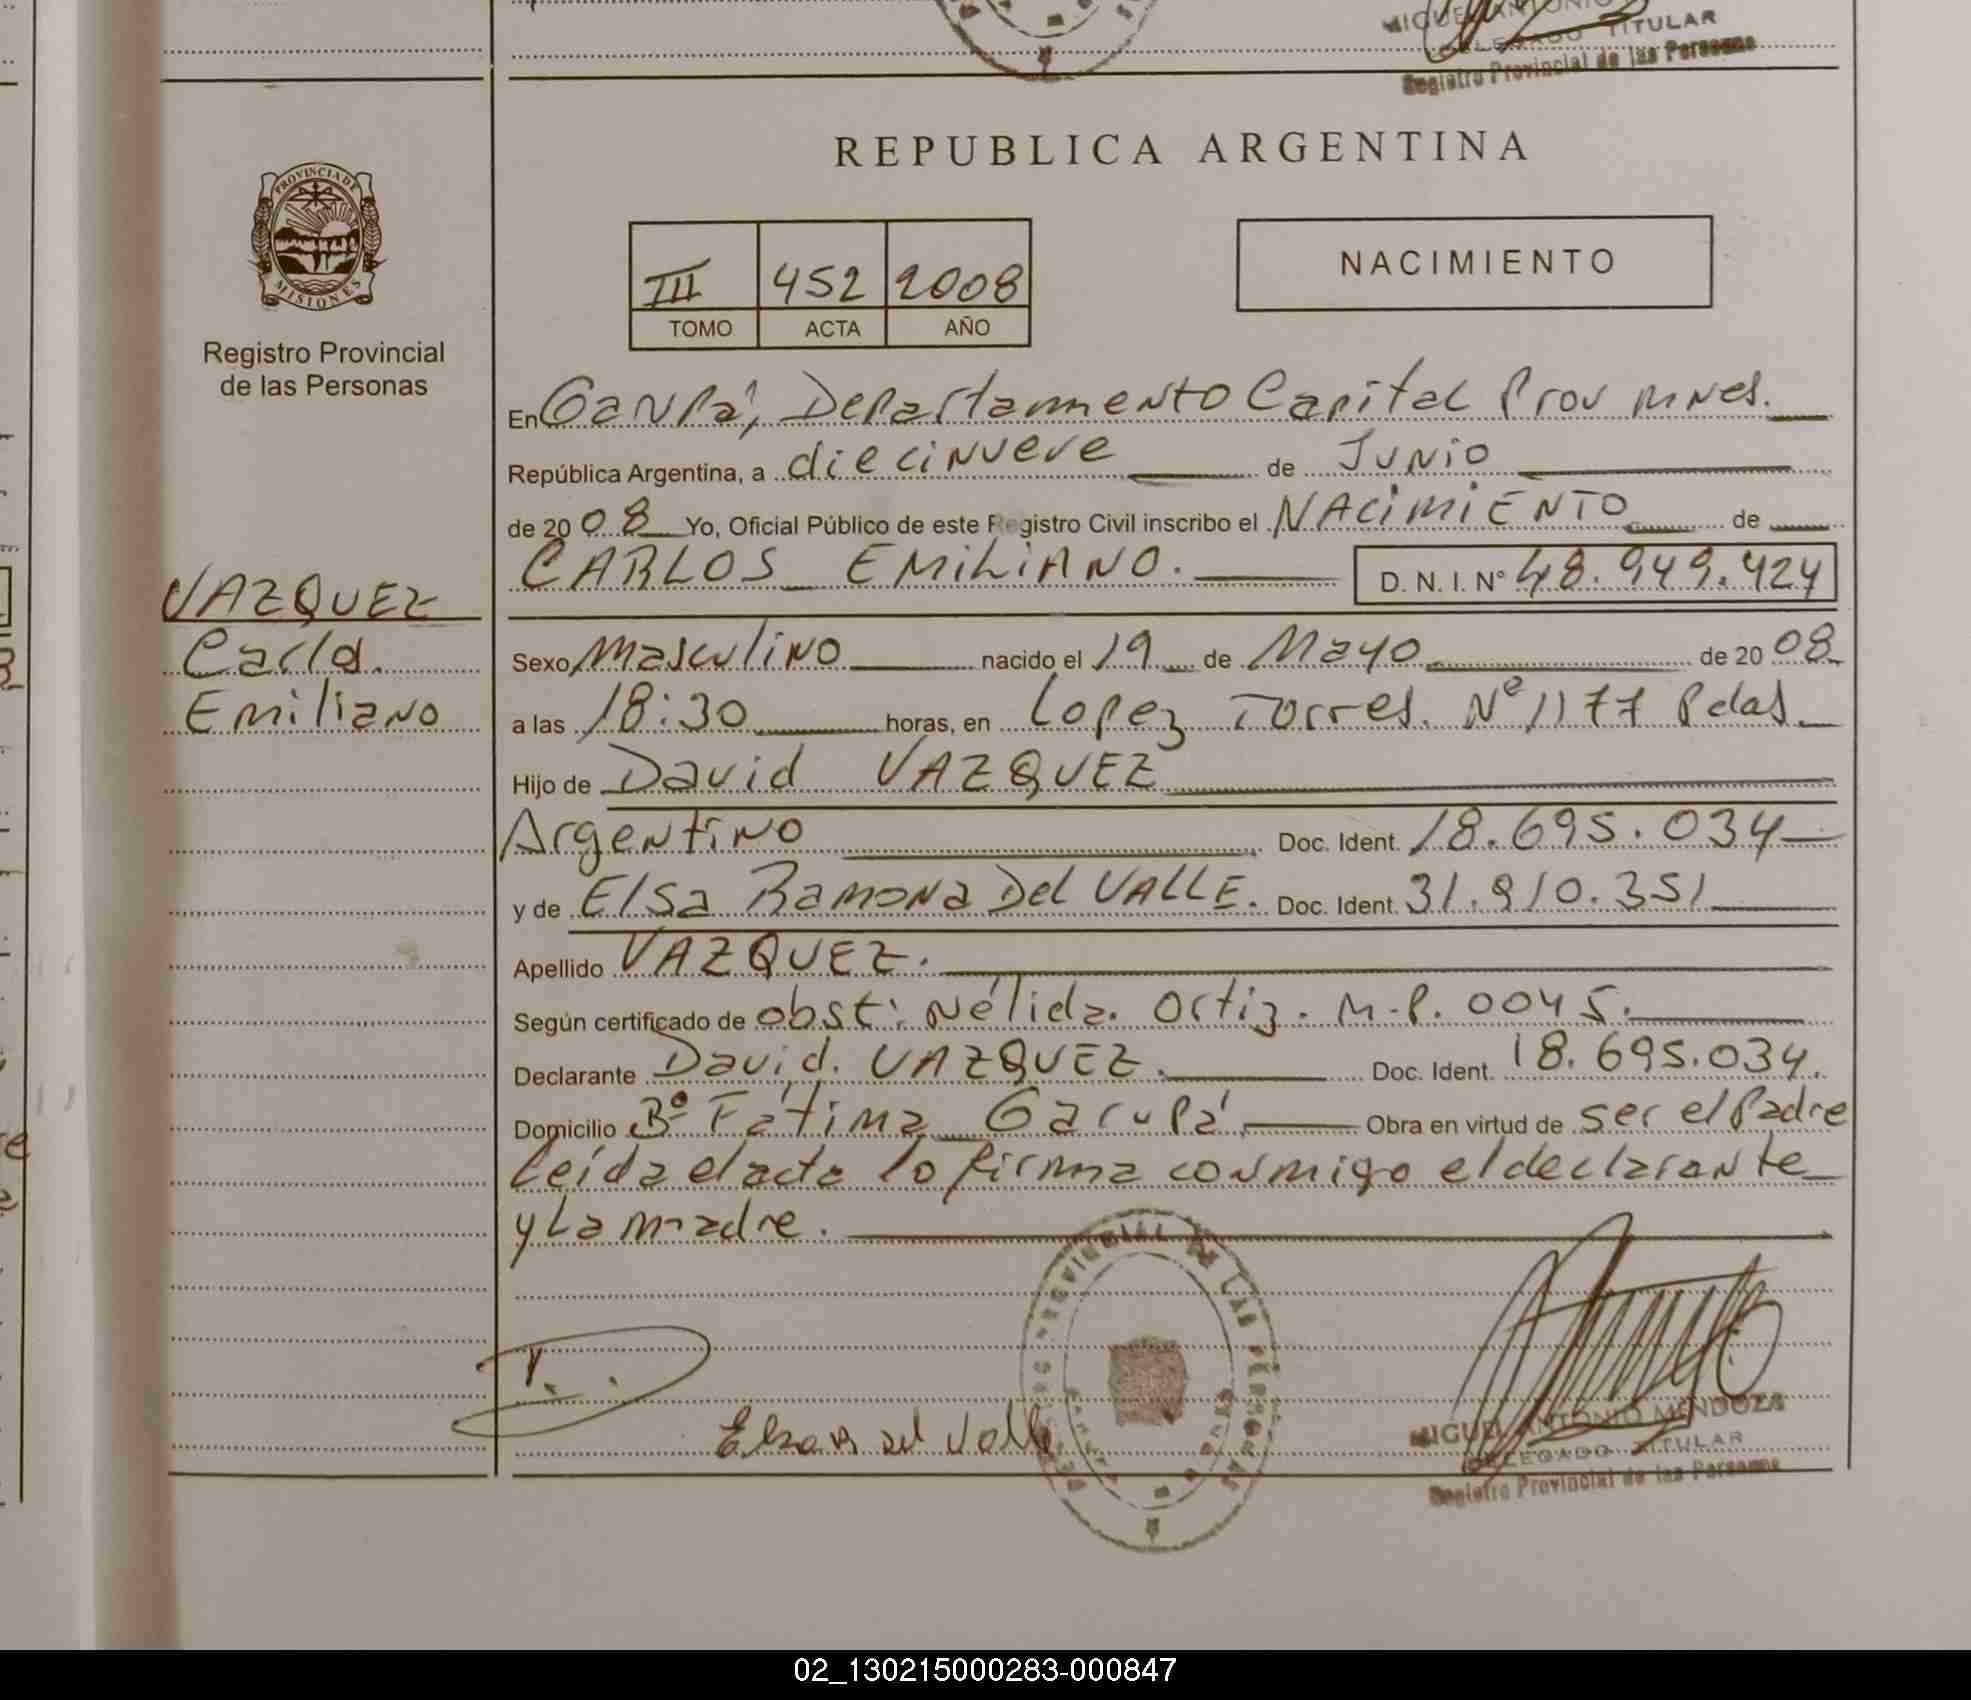 MIGUEL ANTONIO
DELEGADO TITULAR
Registro Provincial de las Personas
REPUBLICA ARGENTINA
PROVINCIA DE
MISIONES
III 452 2008
TOMO ACTA AÑO
NACIMIENTO
Registro Provincial
de las Personas
En Garupá, Departamento Capital Prov Mnes.
República Argentina, a diecinueve de Junio
de 2008 Yo, Oficial Público de este Registro Civil inscribo el NACIMIENTO de
CARLOS EMILIANO. D. N. I. N° 48.949.424
VAZQUEZ
Carlos
Emiliano
Sexo Masculino nacido el 19 de Mayo de 2008
a las 18:30 horas, en Lopez Torres. Nº 1177 Pdas.
Hijo de David VAZQUEZ
Argentino Doc. Ident. 18.695.034
y de Elsa Ramona Del VALLE. Doc. Ident. 31.910.351
Apellido VAZQUEZ.
Según certificado de obst: Nélida. Ortiz. M.P. 0045.
Declarante David. VAZQUEZ. Doc. Ident. 18.695.034.
Domicilio Bº Fátima Garupá Obra en virtud de ser el Padre
leída el acta lo firma conmigo el declarante
y la madre.
Elsa R del Valle
MIGUEL ANTONIO MENDOZA
DELEGADO TITULAR
Registro Provincial de las Personas
02_130215000283-000847